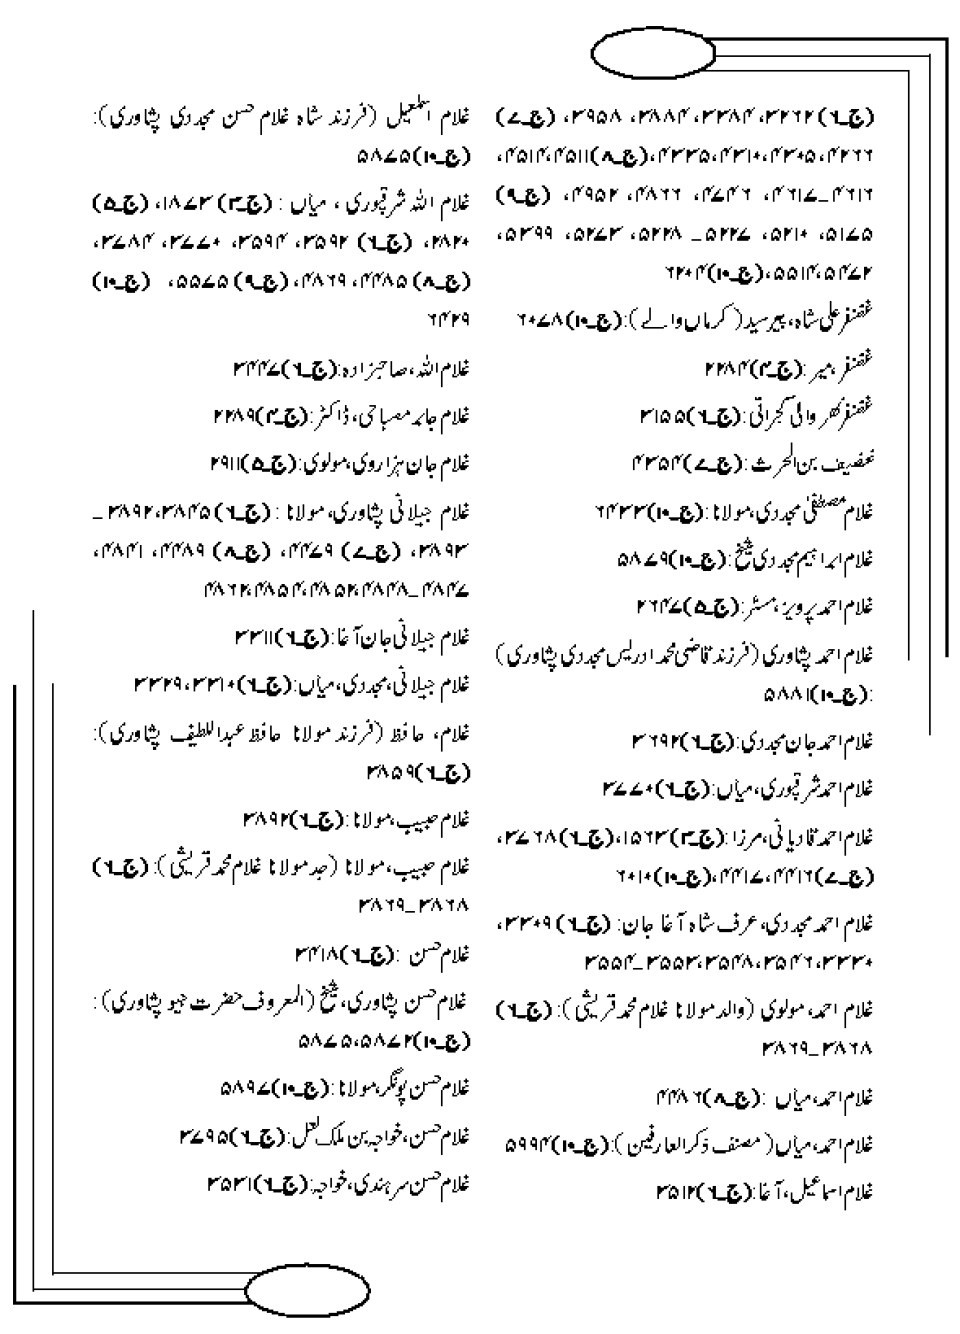 (ج_٦)۳۲٦۲، ۳۳۸۴، ۳۸۸۴، ۳۹۵۸، (ج_۷)
۴۲٦٦، ۴۳۰۵، ۴۳۱۰، ۴۳۳۵، (ج_۸)۴۵۱۱، ۴۵۱۴،
۴٦۱٦_۴٦۱۷، ۴۷۴٦، ۴۸٦٦، ۴۹۵۲، (ج_۹)
۵۱۷۵، ۵۲۱۰، ۵۲۲۷_ ۵۲۲۸، ۵۲۷۳، ۵۳۹۹،
۵۴۷۲، ۵۵۱۴، (ج_۱۰)٦۲۰۴
غضنفر علی شاہ، پیر سید (کرماں والے):(ج_۱۰)٦۰۷۸
غضنفر، میر:(ج_۴)۲۲۸۴
غضنفر گجراتی:(ج_٦)۳۱۵۵
غضیف بن الحرث:(ج_۷)۴۳۵۴
غلام مصطفیٰ مجددی، مولانا:(ج_۱۰)٦۴۳۳
غلام ابراہیم مجددی شیخ:(ج_۱۰)۵۸۷۹
غلام احمد پرویز، مسٹر:(ج_۵)۲٦۴۷
غلام احمد پشاوری (فرزند قاضی محمد ادریس مجددی پشاوری)
:(ج_۱۰)۵۸۸۱
غلام احمد جان مجددی:(ج_٦)۳٦۹۲
غلام احمد شرقپوری، میاں:(ج_٦)۳۷۷۰
غلام احمد قادیانی، مرزا:(ج_۳)۱۵٦۳، (ج_٦)۳۷٦۸،
(ج_۷)۴۴۱٦، ۴۴۱۷، (ج_۱۰)٦۰۱۰
غلام احمد مجددی، عرف شاہ آغا جان: (ج_٦)۳۳۰۹،
۳۳۳۰، ۳۵۴٦، ۳۵۴۸، ۳۵۵۳_۳۵۵۴
غلام احمد، مولوی (والد مولانا غلام محمد قریشی): (ج_٦)
۳۸٦۸_۳۸٦۹
غلام احمد، میاں :(ج_۸)۴۴۸٦
غلام احمد، میاں (مصنف ذکر العارفین):(ج_۱۰)۵۹۹۴
غلام اسماعیل، آغا:(ج_٦)۳۵۱۲
غلام اسمٰعیل (فرزند شاہ غلام حسن مجددی پشاوری):
(ج_۱۰)۵۸۷۵
غلام اللہ شرقپوری ، میاں :(ج_۳)۱۸۷۳، (ج_۵)
۲۸۲۰، (ج_٦) ۳۵۹۲، ۳۵۹۴، ۳۷۷۰، ۳۷۸۴،
(ج_۸)۴۴۸۵، ۴۸٦۹، (ج_۹)۵۵۷۵، (ج_۱۰)
٦۴۲۹
غلام اللہ، صاحبزادہ:(ج_٦)۳۴۴۷
غلام جابر مصباحی، ڈاکٹر:(ج_۴)۲۲۸۹
غلام جان ہزاروی، مولوی:(ج_۵)۲۹۱۱
غلام جیلانی پشاوری، مولانا :(ج_٦)۳۸۴۵، ۳۸۹۲_
۳۸۹۳، (ج_۷) ۴۴۷۹، (ج_۸) ۴۴۸۹، ۴۸۴۱،
۴۸۴۷_۴۸۴۸، ۴۸۵۲، ۴۸۵۴، ۴۸٦۲
غلام جیلانی جان آغا:(ج_٦)۳۳۱۱
غلام جیلانی، مجددی، میاں:(ج_٦)۳۳۱۰، ۳۳۲۹
غلام، حافظ (فرزند مولانا حافظ عبداللطیف پشاوری):
(ج_٦)۳۸۵۹
غلام حبیب، مولانا:(ج_٦)۳۸۹۲
غلام حبیب، مولانا (جد مولانا غلام محمد قریشی): (ج_٦)
۳۸٦۸_۳۸٦۹
غلام حسن :(ج_٦)۳۴۱۸
غلام حسن پشاوری، شیخ (المعروف حضرت جیو پشاوری):
(ج_۱۰)۵۸۷۲، ۵۸۷۵
غلام حسن پونگر، مولانا:(ج_۱۰)۵۸۹۷
غلام حسن، خواجہ بن ملک لعل:(ج_٦)۳۷۹۵
غلام حسن سرہندی، خواجہ:(ج_٦)۳۵۳۱